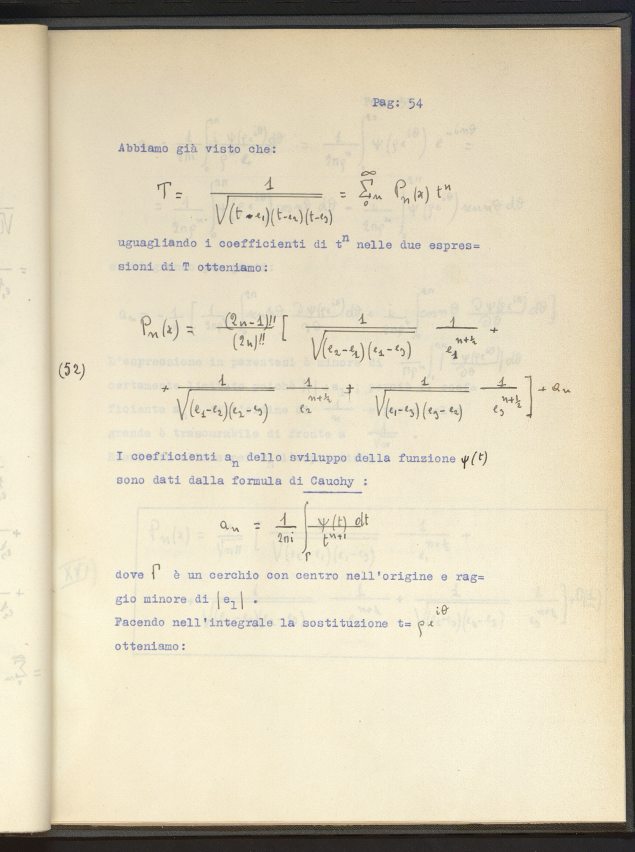 Pag: 54
Abbiamo già visto che:
T = 1 / √(t-e₁)(t-e₂)(t-e₃) = Σ₀^∞ₙ Pₙ(x) tⁿ
uguagliando i coefficienti di tⁿ nelle due espres=
sioni di T otteniamo:
Pₙ(x) = (2n-1)!! / (2n)!! [ 1 / √(e₂-e₁)(e₁-e₃) 1 / e₁^(n+½) +
(52)
+ 1 / √(e₁-e₂)(e₂-e₃) 1 / e₂^(n+½) + 1 / √(e₁-e₃)(e₃-e₂) 1 / e₃^(n+½) ] + aₙ
I coefficienti aₙ dello sviluppo della funzione ψ(t)
sono dati dalla formula di Cauchy :
aₙ = 1 / 2πi ∫_Γ ψ(t) dt / tⁿ⁺¹
dove Γ è un cerchio con centro nell'origine e rag=
gio minore di |e₁| .
Facendo nell'integrale la sostituzione t= ρe^iθ
otteniamo: